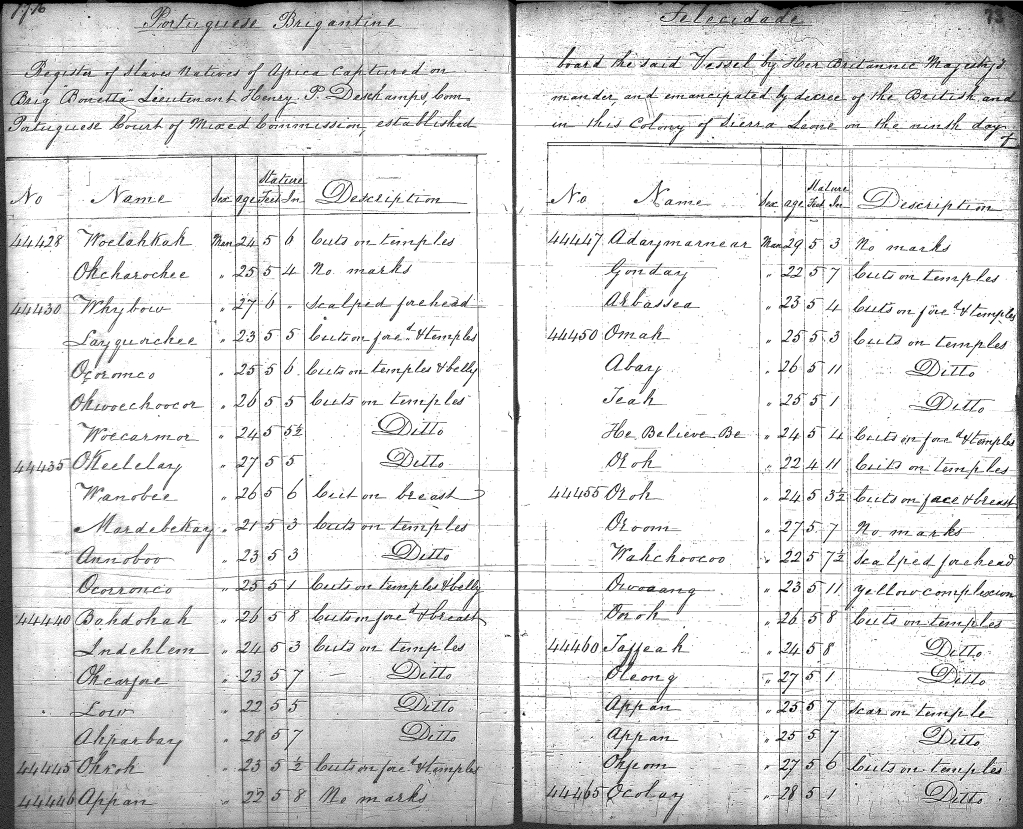 Portuguese Brigantine
Register of Slaves Natives of Africa Captured on
Brig "Bonetta" Lieutenant Henry P. Deschamps, Com
Portuguese Court of Mixed Commission, established
No Name Sex age Stature Feet In Description
44428 Woelahkah Man 24 5 6 Cuts on temples
Okcharochee " 25 5 4 No marks
44430 Whybow " 27 6 " scalped forehead
Layguochee " 23 5 5 Cuts on fored. & temples
Ocoromco " 25 5 6 Cuts on temples & belly
Okwoechoocor " 26 5 5 Cuts on temples
Woccarmor " 24 5 5½ Ditto
44435 Okeelelay " 27 5 5 Ditto
Wanobee " 26 5 6 Cut on breast
Mardebekay " 21 5 3 Cuts on temples
Annoboo " 23 5 3 Ditto
Ocorronco " 25 5 1 Cuts on temples & belly
44440 Bahdohah " 26 5 8 Cuts on fored & breast
Indehlem " 24 5 3 Cuts on temples
Ohcarjoe " 23 5 7 Ditto
Low " 22 5 5 Ditto
Ahparbay " 28 5 7 Ditto
44445 Ohroh " 23 5 ½ Cuts on fored & temples
44446 Appan " 22 5 8 No marks
Felicidade
73
board the said Vessel by Her Britannic Majesty's
mander and emancipated by decree of the British and
in this Colony of Sierra Leone on the ninth day of
No Name Sex age Stature Feet In Description
44447 Adaymarnear Man 29 5 3 No marks
Gonday " 22 5 7 Cuts on temples
Arbassea " 23 5 4 Cuts on fored. & temples
44450 Omah " 25 5 3 Cuts on temples
Abay " 26 5 11 Ditto
Teah " 25 5 1 Ditto
He Believe Be " 24 5 4 Cuts on fored & temples
Oroh " 22 4 11 Cuts on temples
44455 Oroh " 24 5 3½ Cuts on face & breast
Oroom " 27 5 7 No marks
Wahchoocoo " 22 5 7½ scalped forehead
Owoaang " 23 5 11 yellow complexion
Oroh " 26 5 8 Cuts on temples
44460 Jaffeah " 24 5 8 Ditto
Oleong " 27 5 1 Ditto
Appan " 25 5 7 scar on temple
Appan " 25 5 7 Ditto
Ohpom " 27 5 6 Cuts on temples
44465 Ocolay " 28 5 1 Ditto